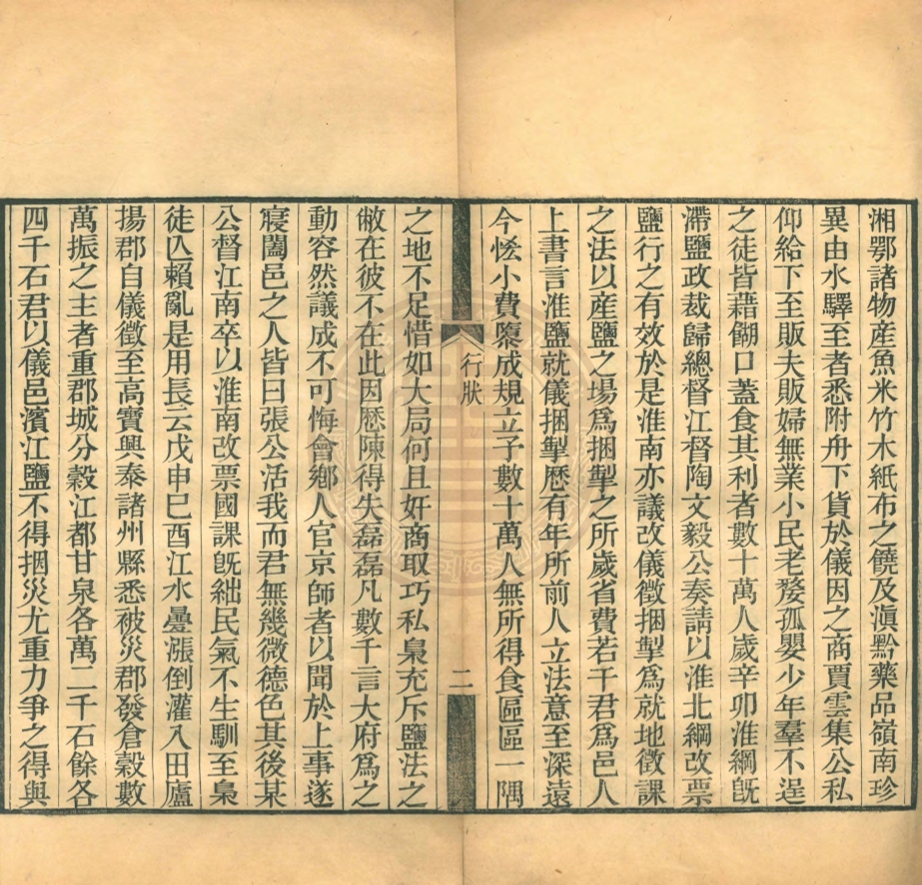 湘鄂諸物產魚米竹木紙布之饒及滇黔藥品嶺南珍
異由水驛至者悉附舟下貨於儀因之商賈雲集公私
仰給下至販夫販婦無業小民老嫠孤嬰少年羣不逞
之徒皆藉餬口蓋食其利者數十萬人歲辛卯淮綱旣
滯鹽政裁歸總督江督陶文毅公奏請以淮北綱改票
鹽行之有效於是淮南亦議改儀徵捆掣爲就地徵課
之法以産鹽之場爲捆掣之所歲省費若干君爲邑人
上書言淮鹽就儀捆掣歷有年所前人立法意至深遠
今恡小費隳成規立孑數十萬人無所得食區區一隅
行狀
二
之地不足惜如大局何且奸商取巧私梟充斥鹽法之
敝在彼不在此因歷陳得失磊磊凡數千言大府爲之
動容然議成不可悔會鄉人官京師者以聞於上事遂
寢闔邑之人皆曰張公活我而君無幾微德色其後某
公督江南卒以淮南改票國課旣絀民氣不生馴至梟
徒亾賴亂是用長云戊申巳酉江水曡漲倒灌入田廬
揚郡自儀徵至高寶興泰諸州縣悉被災郡發倉穀數
萬振之主者重郡城分穀江都甘泉各萬二千石餘各
四千石君以儀邑濱江鹽不得捆災尤重力爭之得與